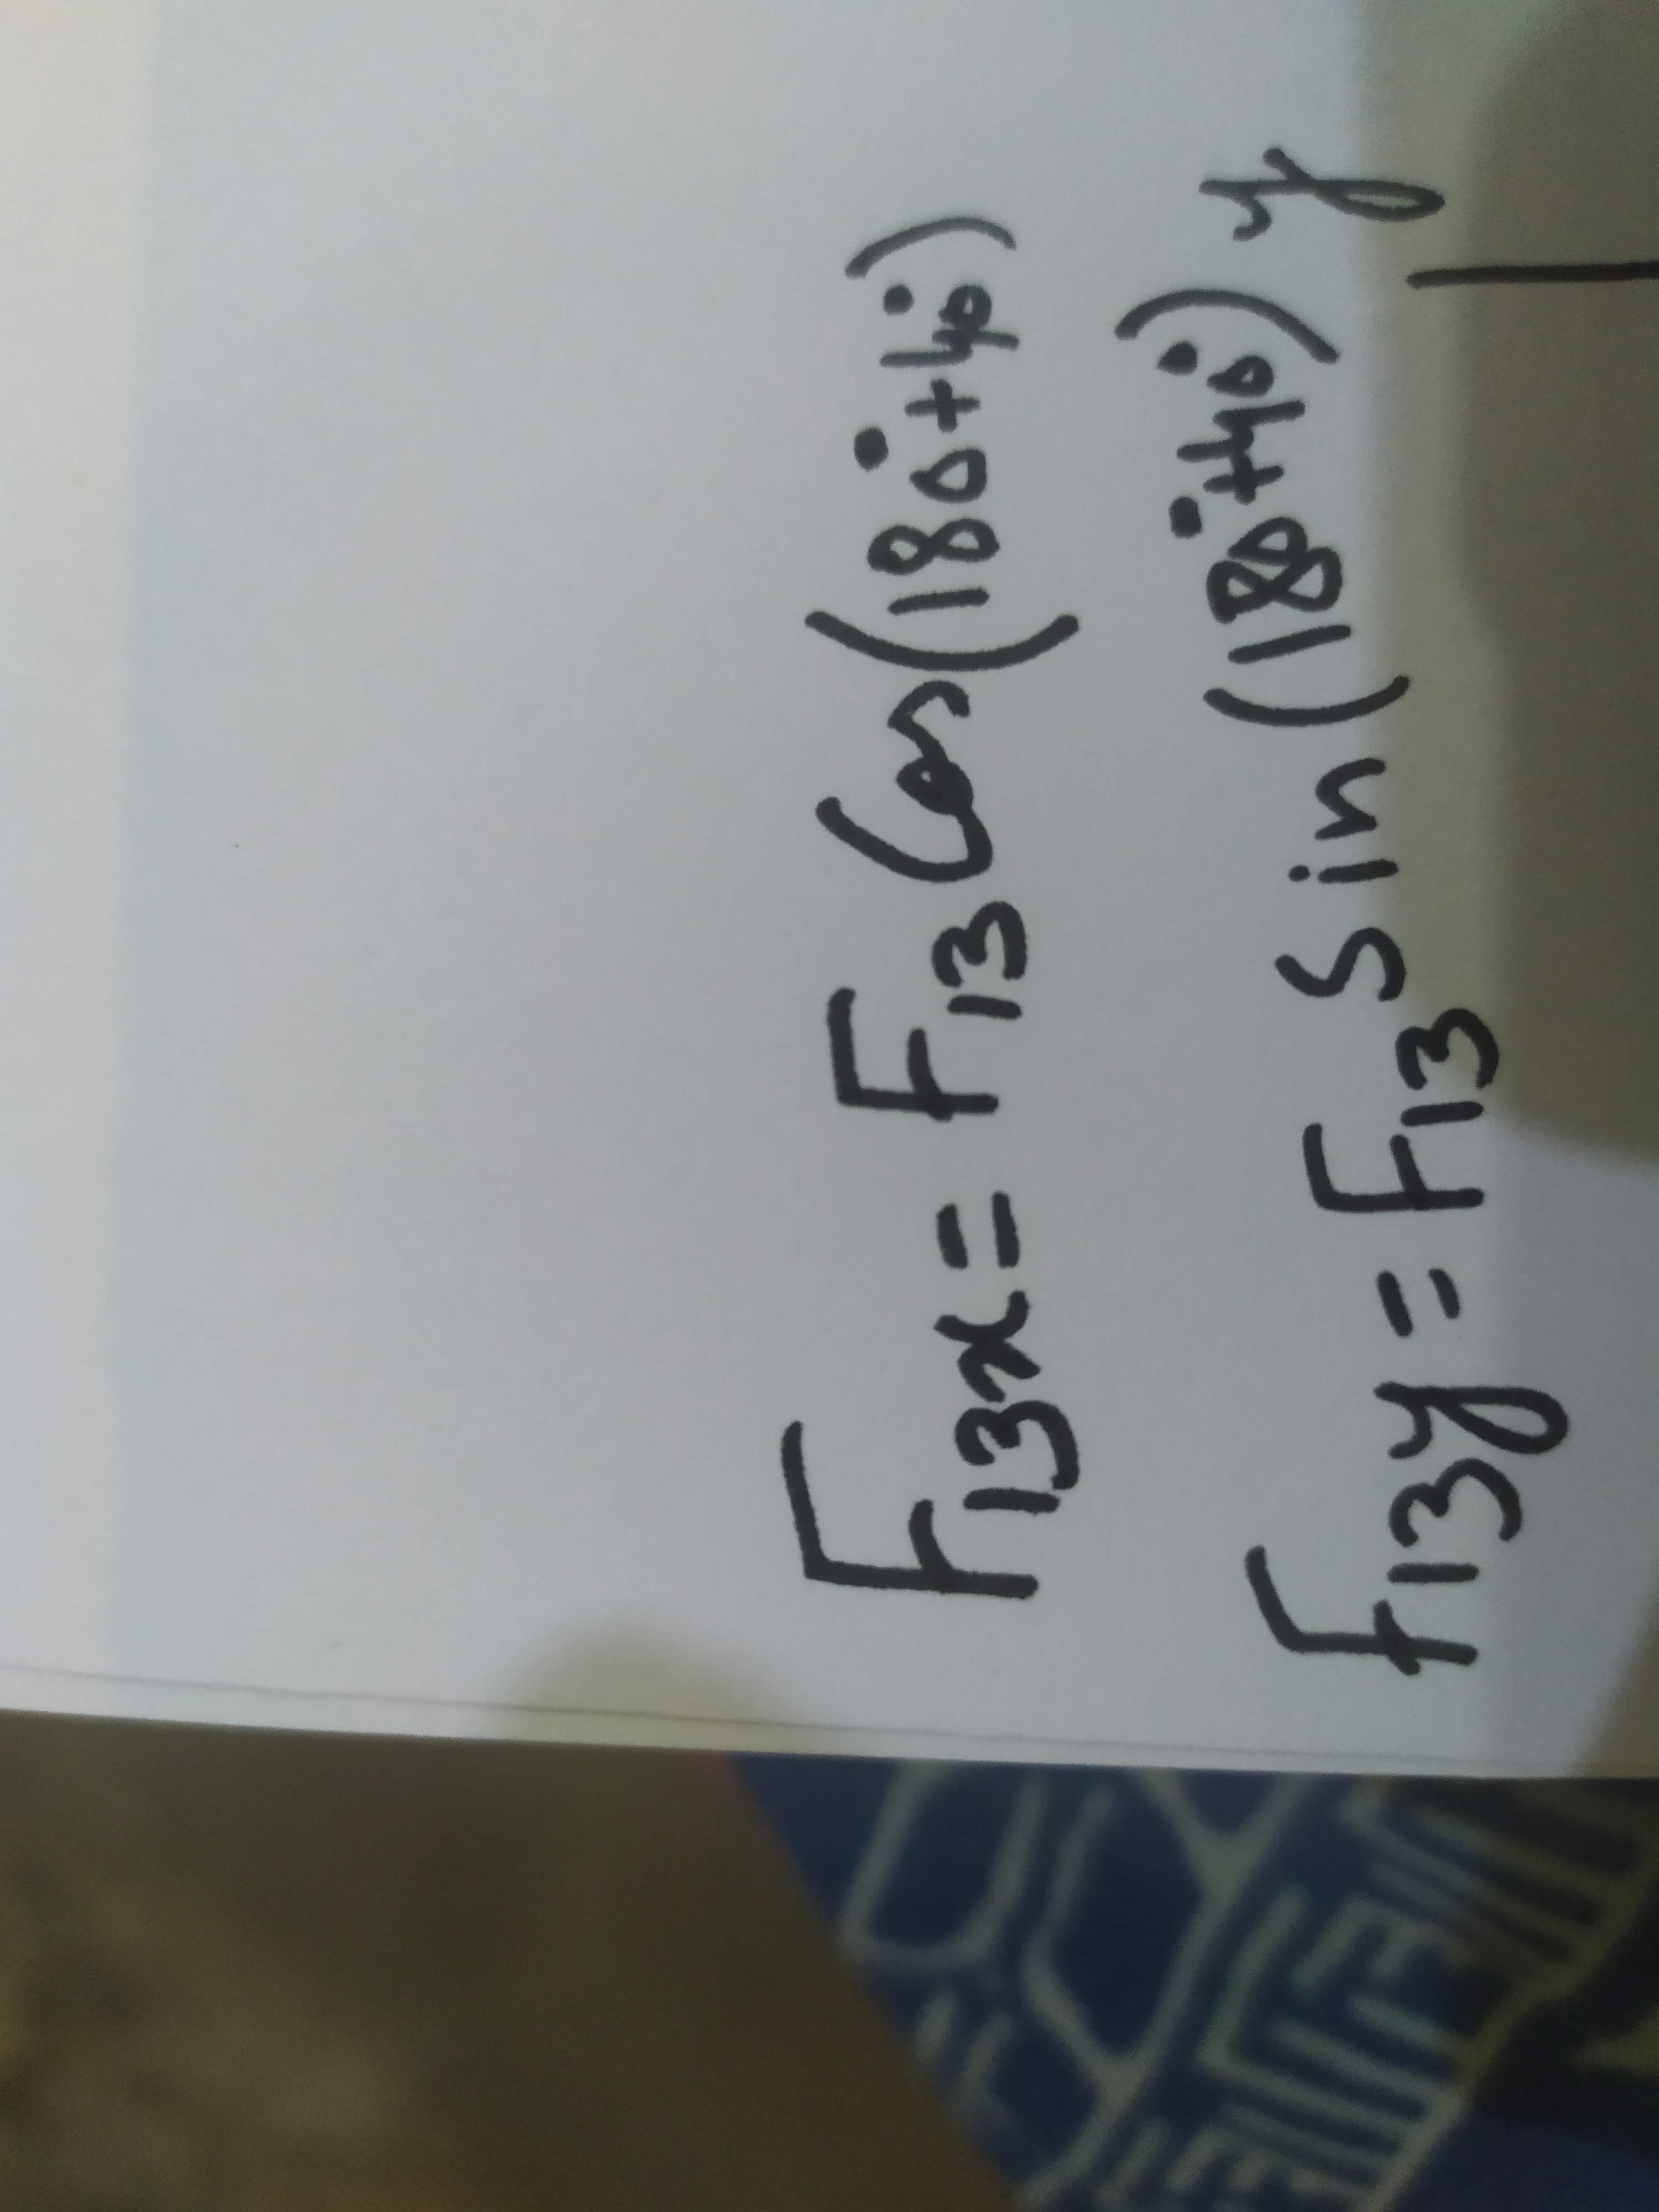 F13x = F13 Cos(180°+40°)
F13y = F13 Sin (180°+40°) y